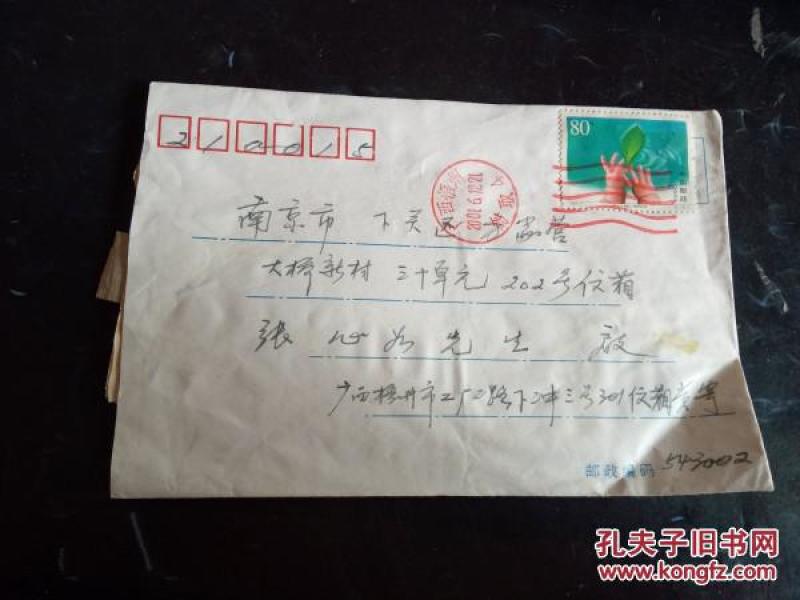 210015
80
2001.6.12.21
南京市 下关区
大桥新村 三十单元 202号信箱
张 心如先生 启
广西梧州市 下冲三号301信箱
邮政编码 543002
孔夫子旧书网
www.kongfz.com